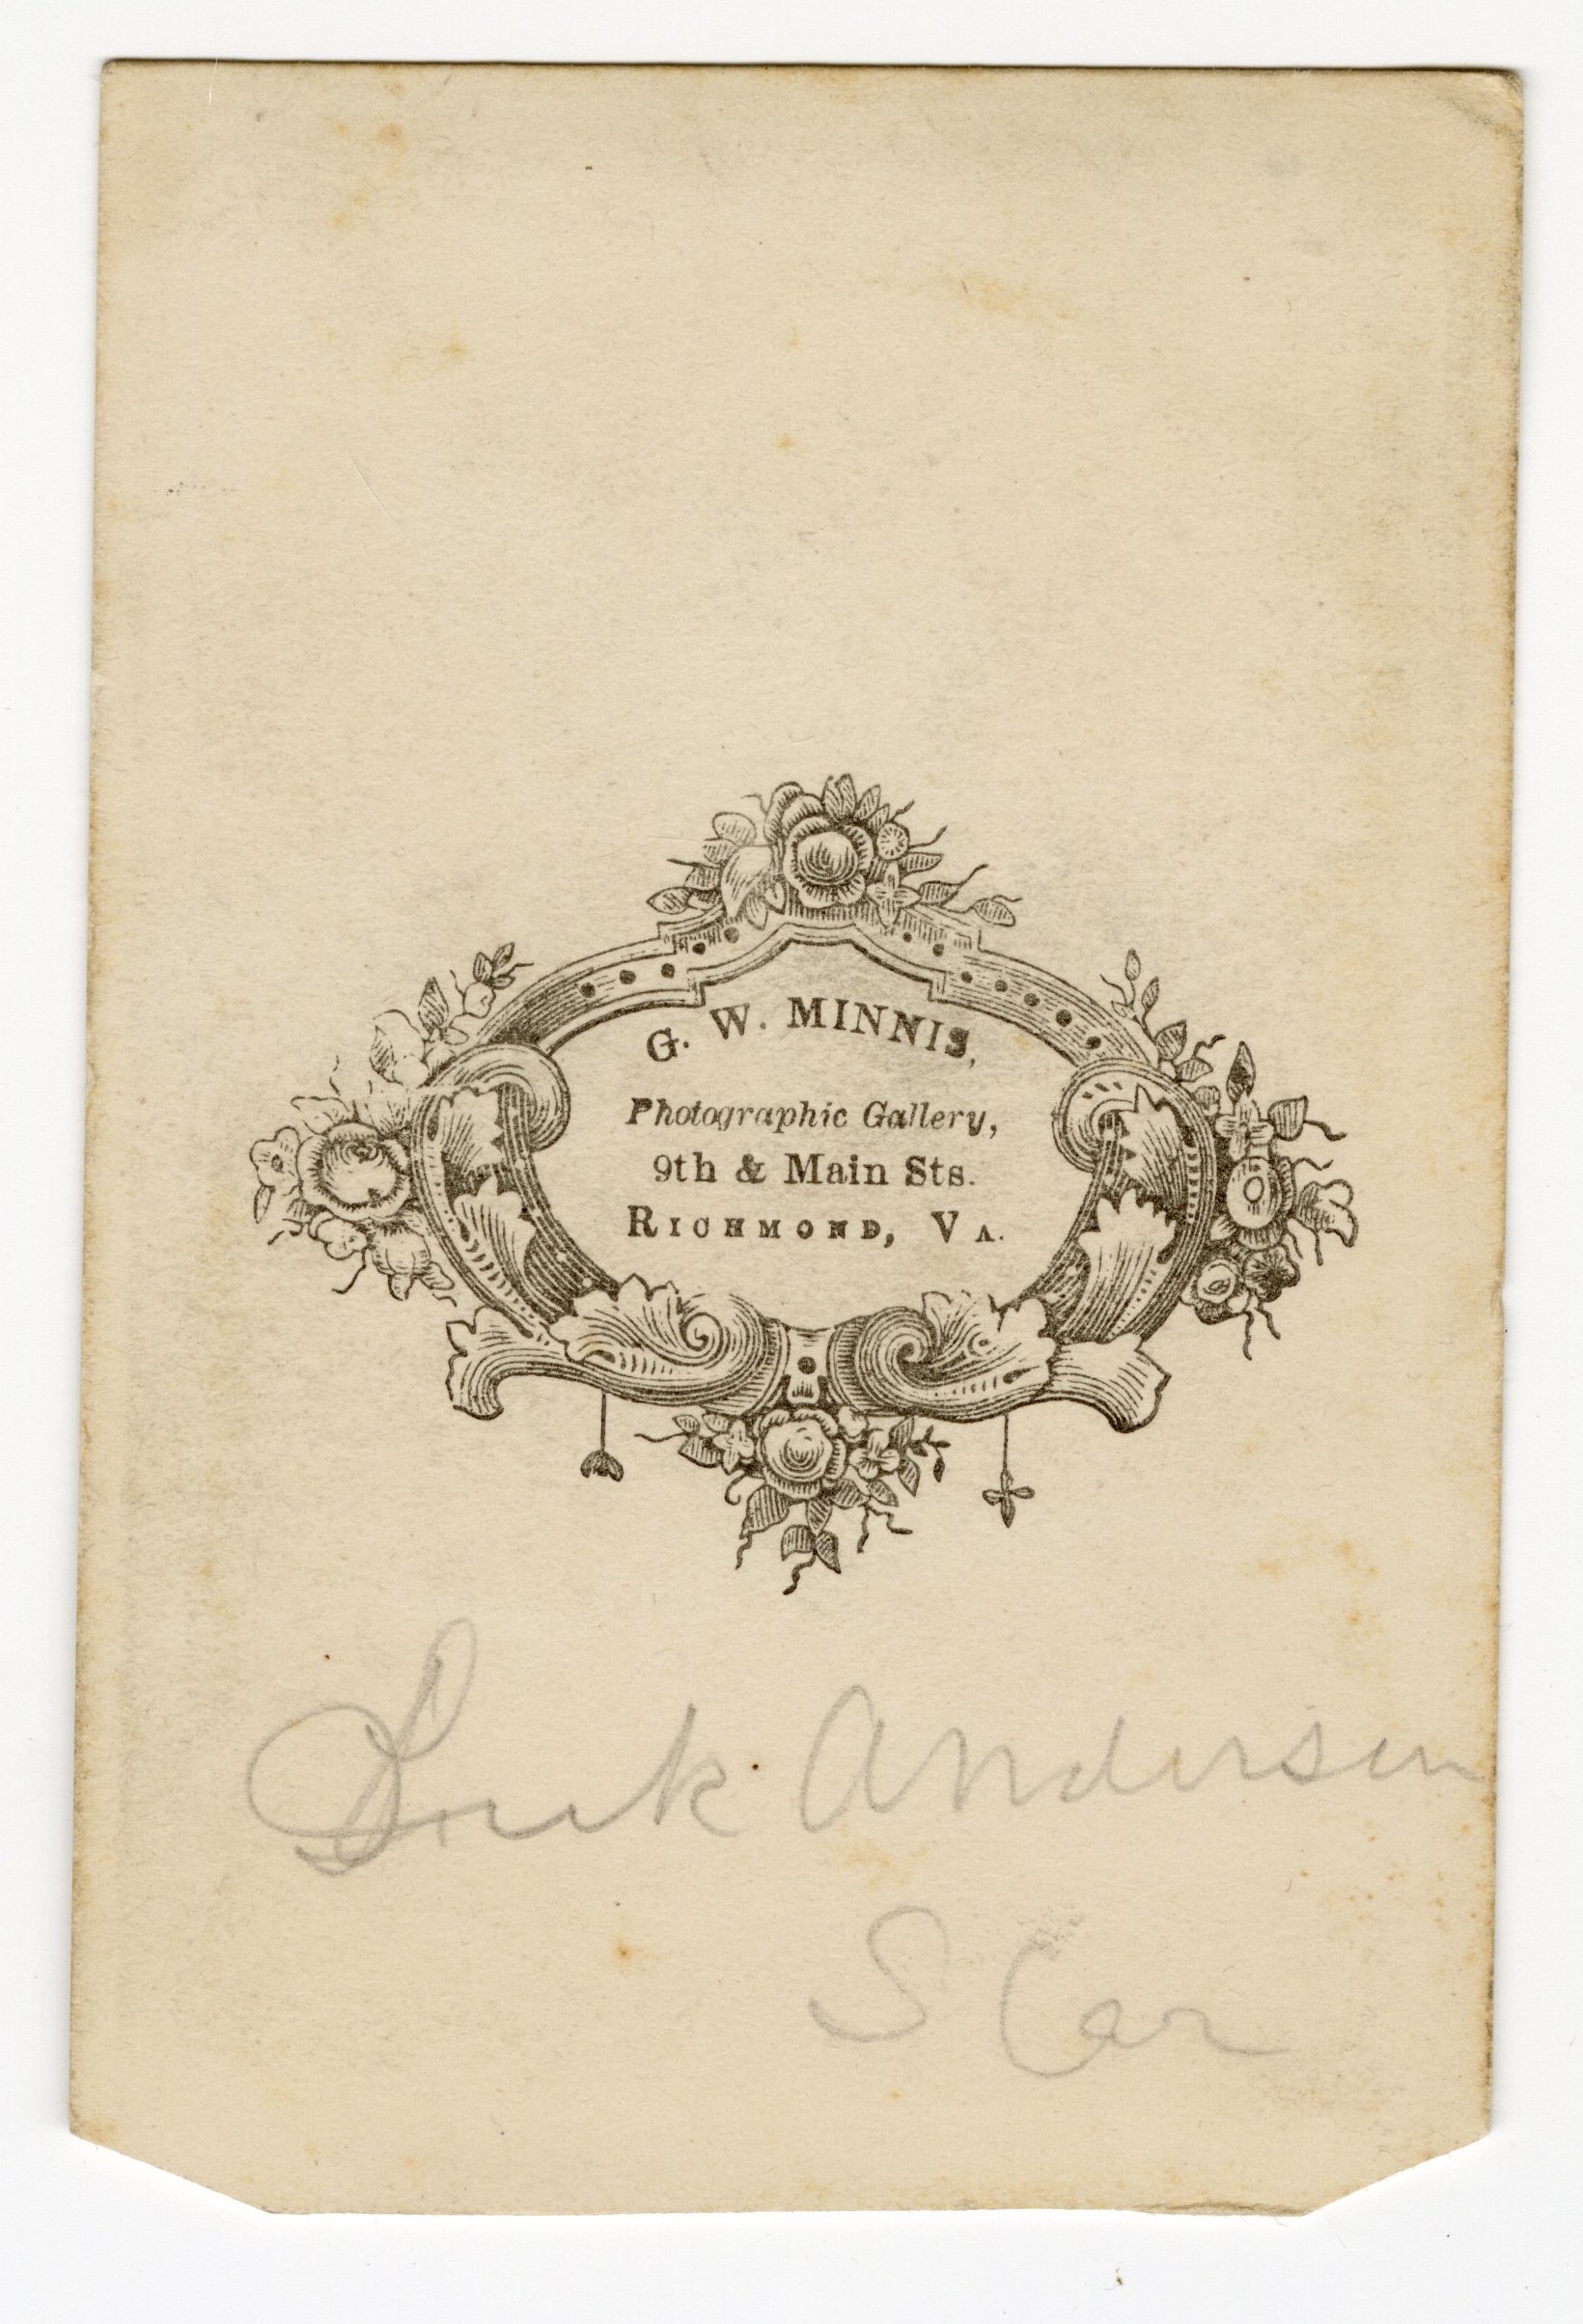 G. W. MINNIS,
Photographic Gallery,
9th & Main Sts.
RICHMOND, VA.
Dick Anderson
S Car